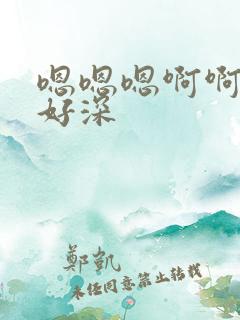 嗯嗯嗯啊啊
好深
鄭凱
未经同意禁止转载